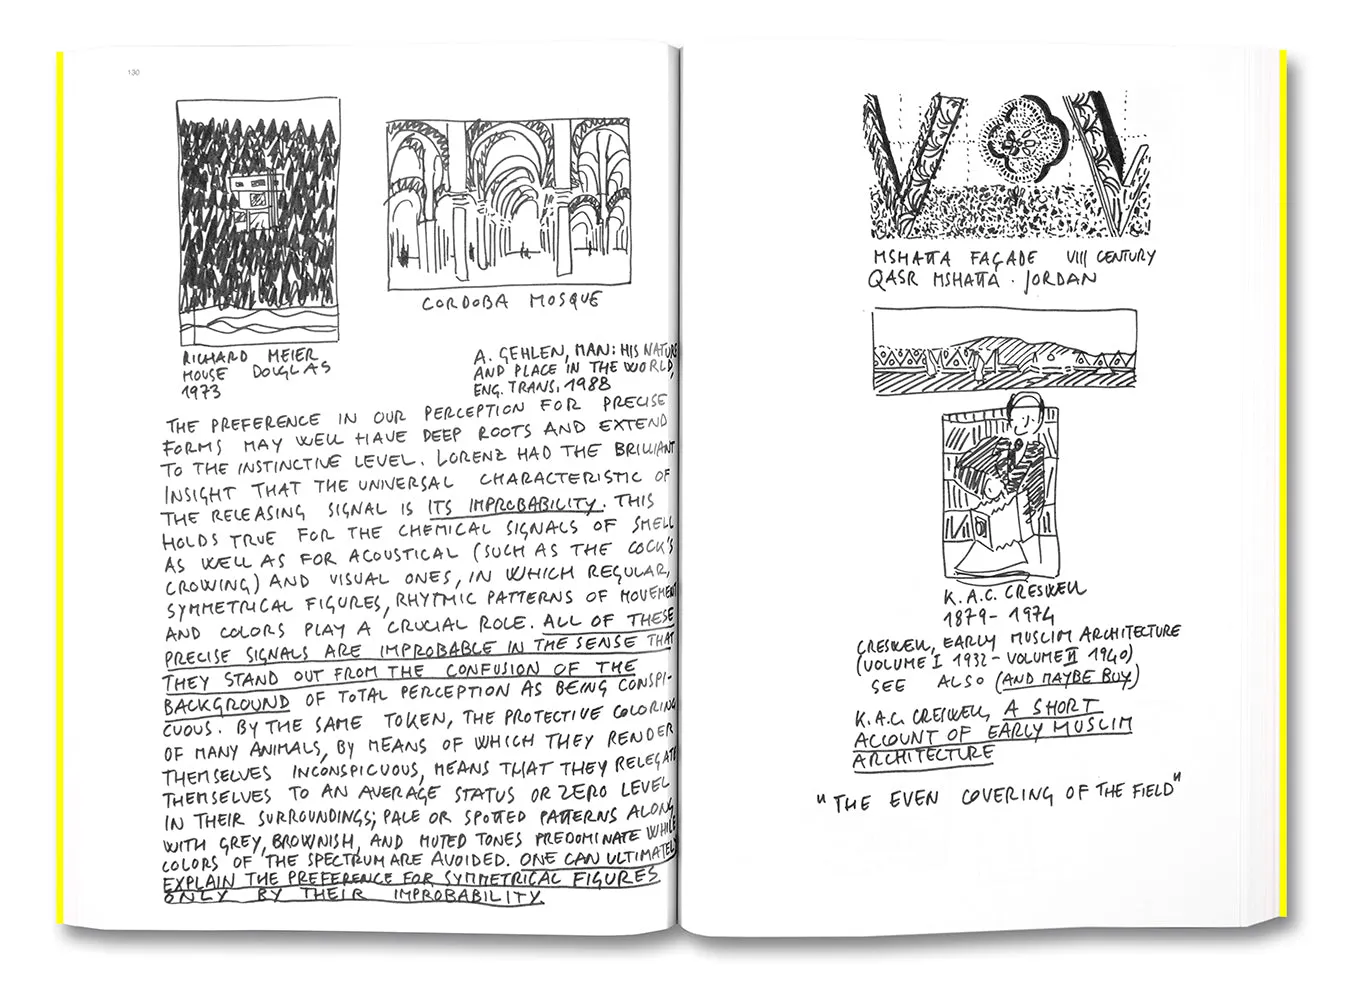 130
RICHARD MEIER
HOUSE DOUGLAS
1973
CORDOBA MOSQUE
A. GEHLEN, MAN: HIS NATURE
AND PLACE IN THE WORLD,
ENG. TRANS. 1988
THE PREFERENCE IN OUR PERCEPTION FOR PRECISE
FORMS MAY WELL HAVE DEEP ROOTS AND EXTEND
TO THE INSTINCTIVE LEVEL. LORENZ HAD THE BRILLIANT
INSIGHT THAT THE UNIVERSAL CHARACTERISTIC OF
THE RELEASING SIGNAL IS ITS IMPROBABILITY. THIS
HOLDS TRUE FOR THE CHEMICAL SIGNALS OF SMELL
AS WELL AS FOR ACOUSTICAL (SUCH AS THE COCK'S
CROWING) AND VISUAL ONES, IN WHICH REGULAR,
SYMMETRICAL FIGURES, RHYTMIC PATTERNS OF MOVEMENT
AND COLORS PLAY A CRUCIAL ROLE. ALL OF THESE
PRECISE SIGNALS ARE IMPROBABLE IN THE SENSE THAT
THEY STAND OUT FROM THE CONFUSION OF THE
BACKGROUND OF TOTAL PERCEPTION AS BEING CONSPI-
CUOUS. BY THE SAME TOKEN, THE PROTECTIVE COLORING
OF MANY ANIMALS, BY MEANS OF WHICH THEY RENDER
THEMSELVES INCONSPICUOUS, MEANS THAT THEY RELEGATE
THEMSELVES TO AN AVERAGE STATUS OR ZERO LEVEL
IN THEIR SURROUNDINGS; PALE OR SPOTTED PATTERNS ALONG
WITH GREY, BROWNISH, AND MUTED TONES PREDOMINATE WHILE
COLORS OF THE SPECTRUM ARE AVOIDED. ONE CAN ULTIMATELY
EXPLAIN THE PREFERENCE FOR SYMMETRICAL FIGURES
ONLY BY THEIR IMPROBABILITY.
MSHATTA FAÇADE VIII CENTURY
QASR MSHATTA. JORDAN
K.A.C. CRESWELL
1879 - 1974
CRESWELL, EARLY MUSLIM ARCHITECTURE
(VOLUME I 1932 - VOLUME II 1940)
SEE ALSO (AND MAYBE BUY)
K.A.C. CRESWELL, A SHORT
ACCOUNT OF EARLY MUSLIM
ARCHITECTURE
"THE EVEN COVERING OF THE FIELD"